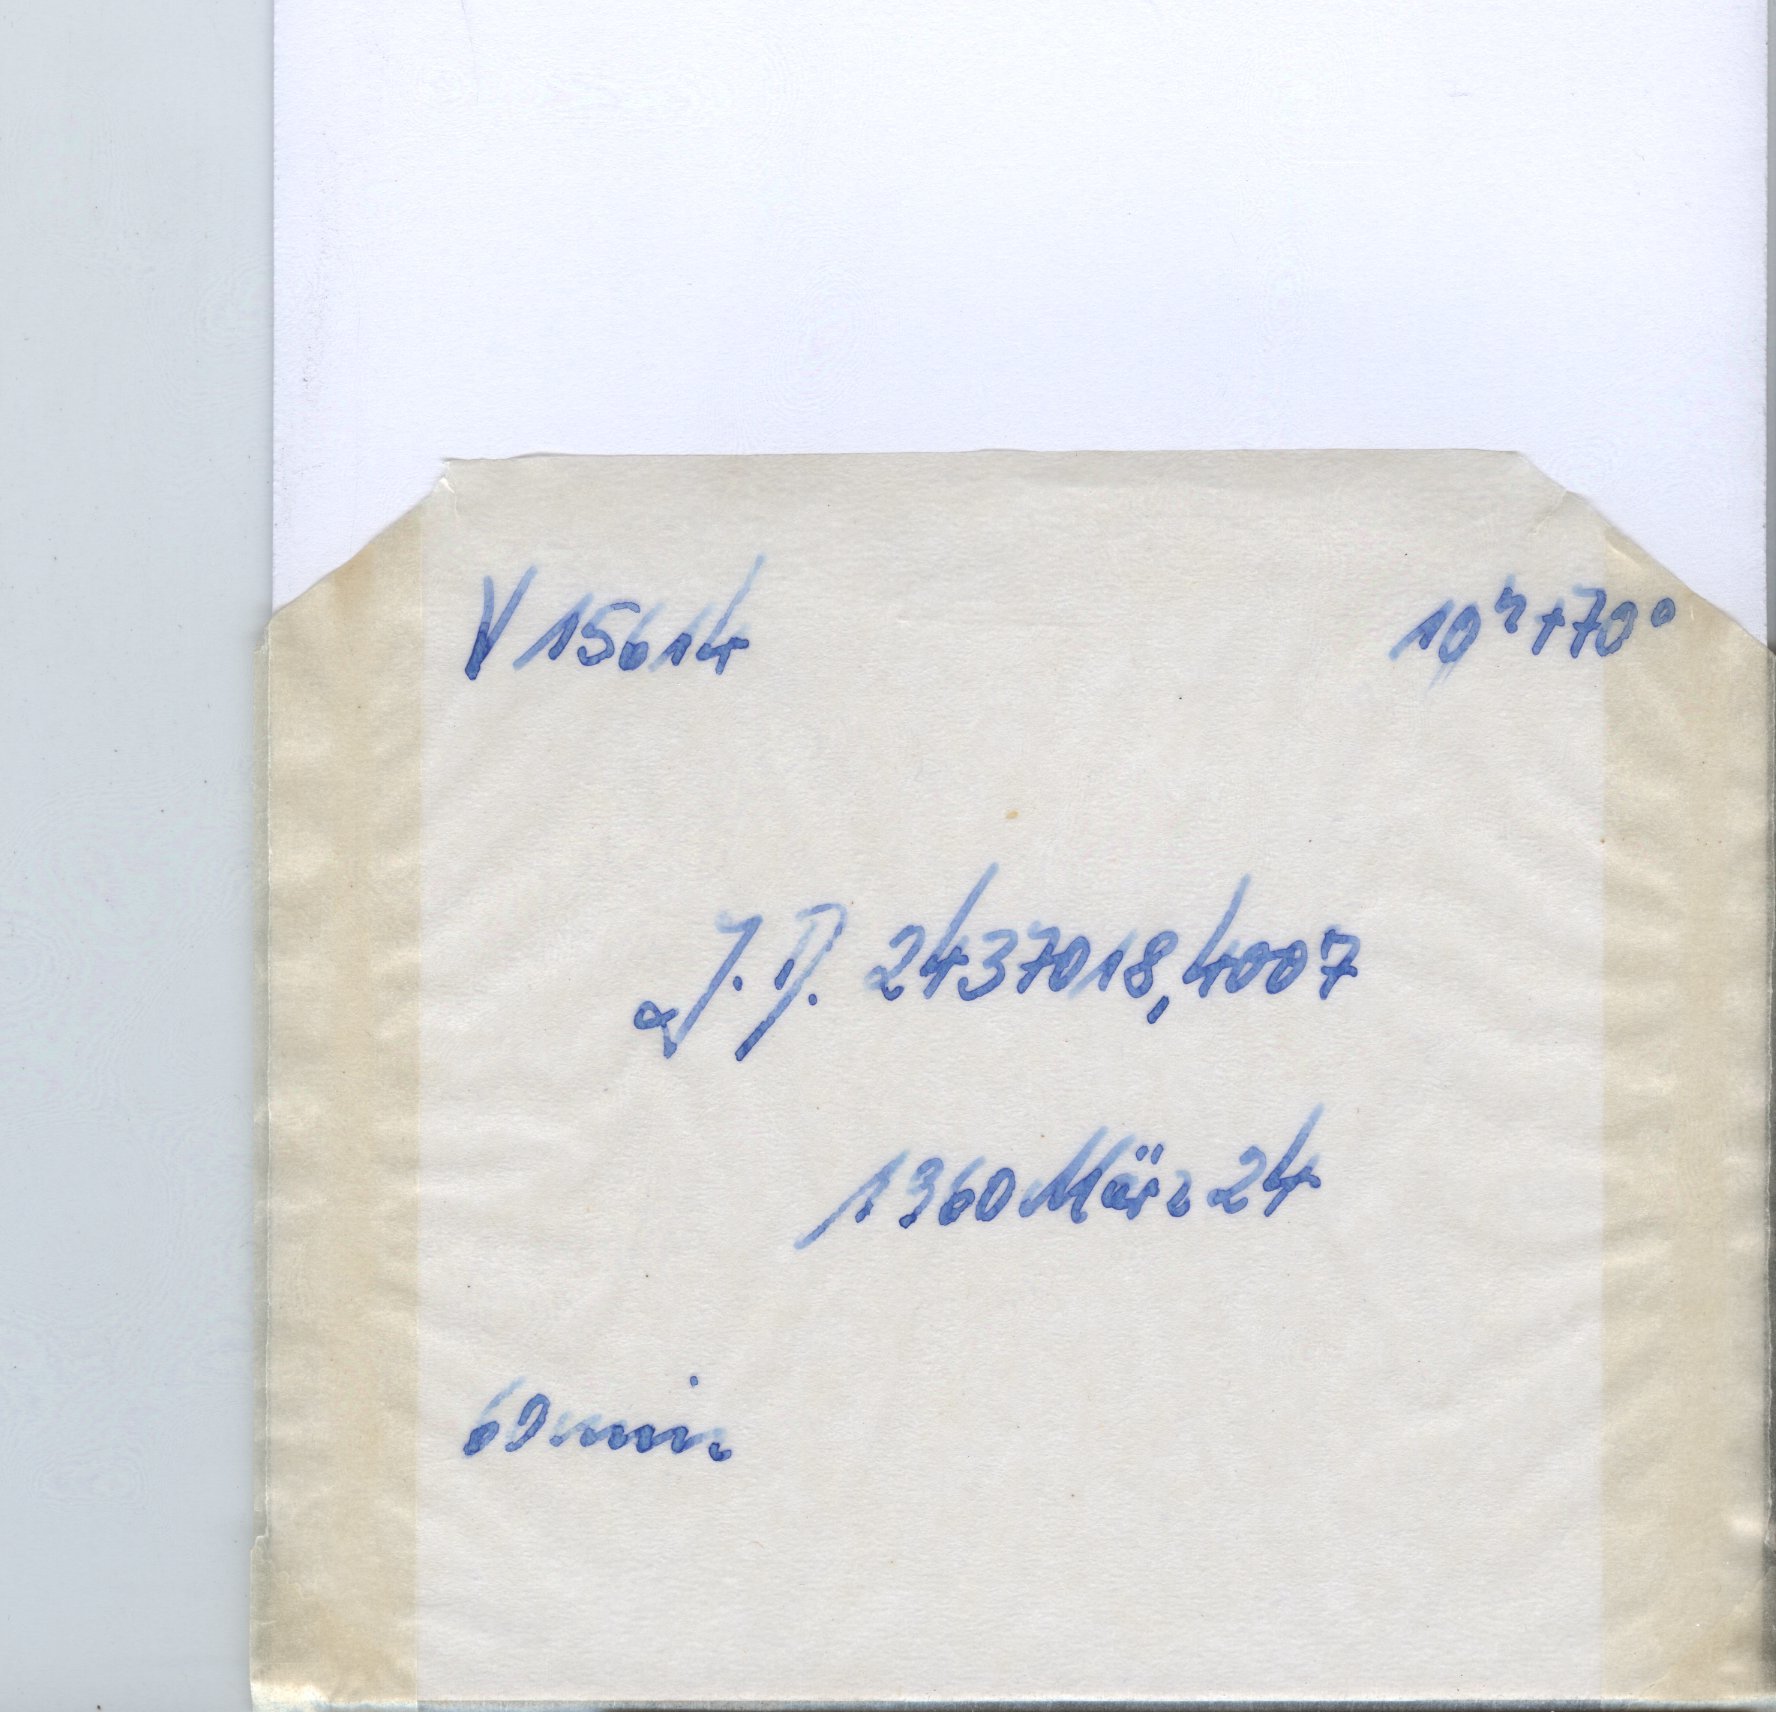 V 15614
10ʰ+70°
J.D. 2437018,4007
1960 März 24
60 min